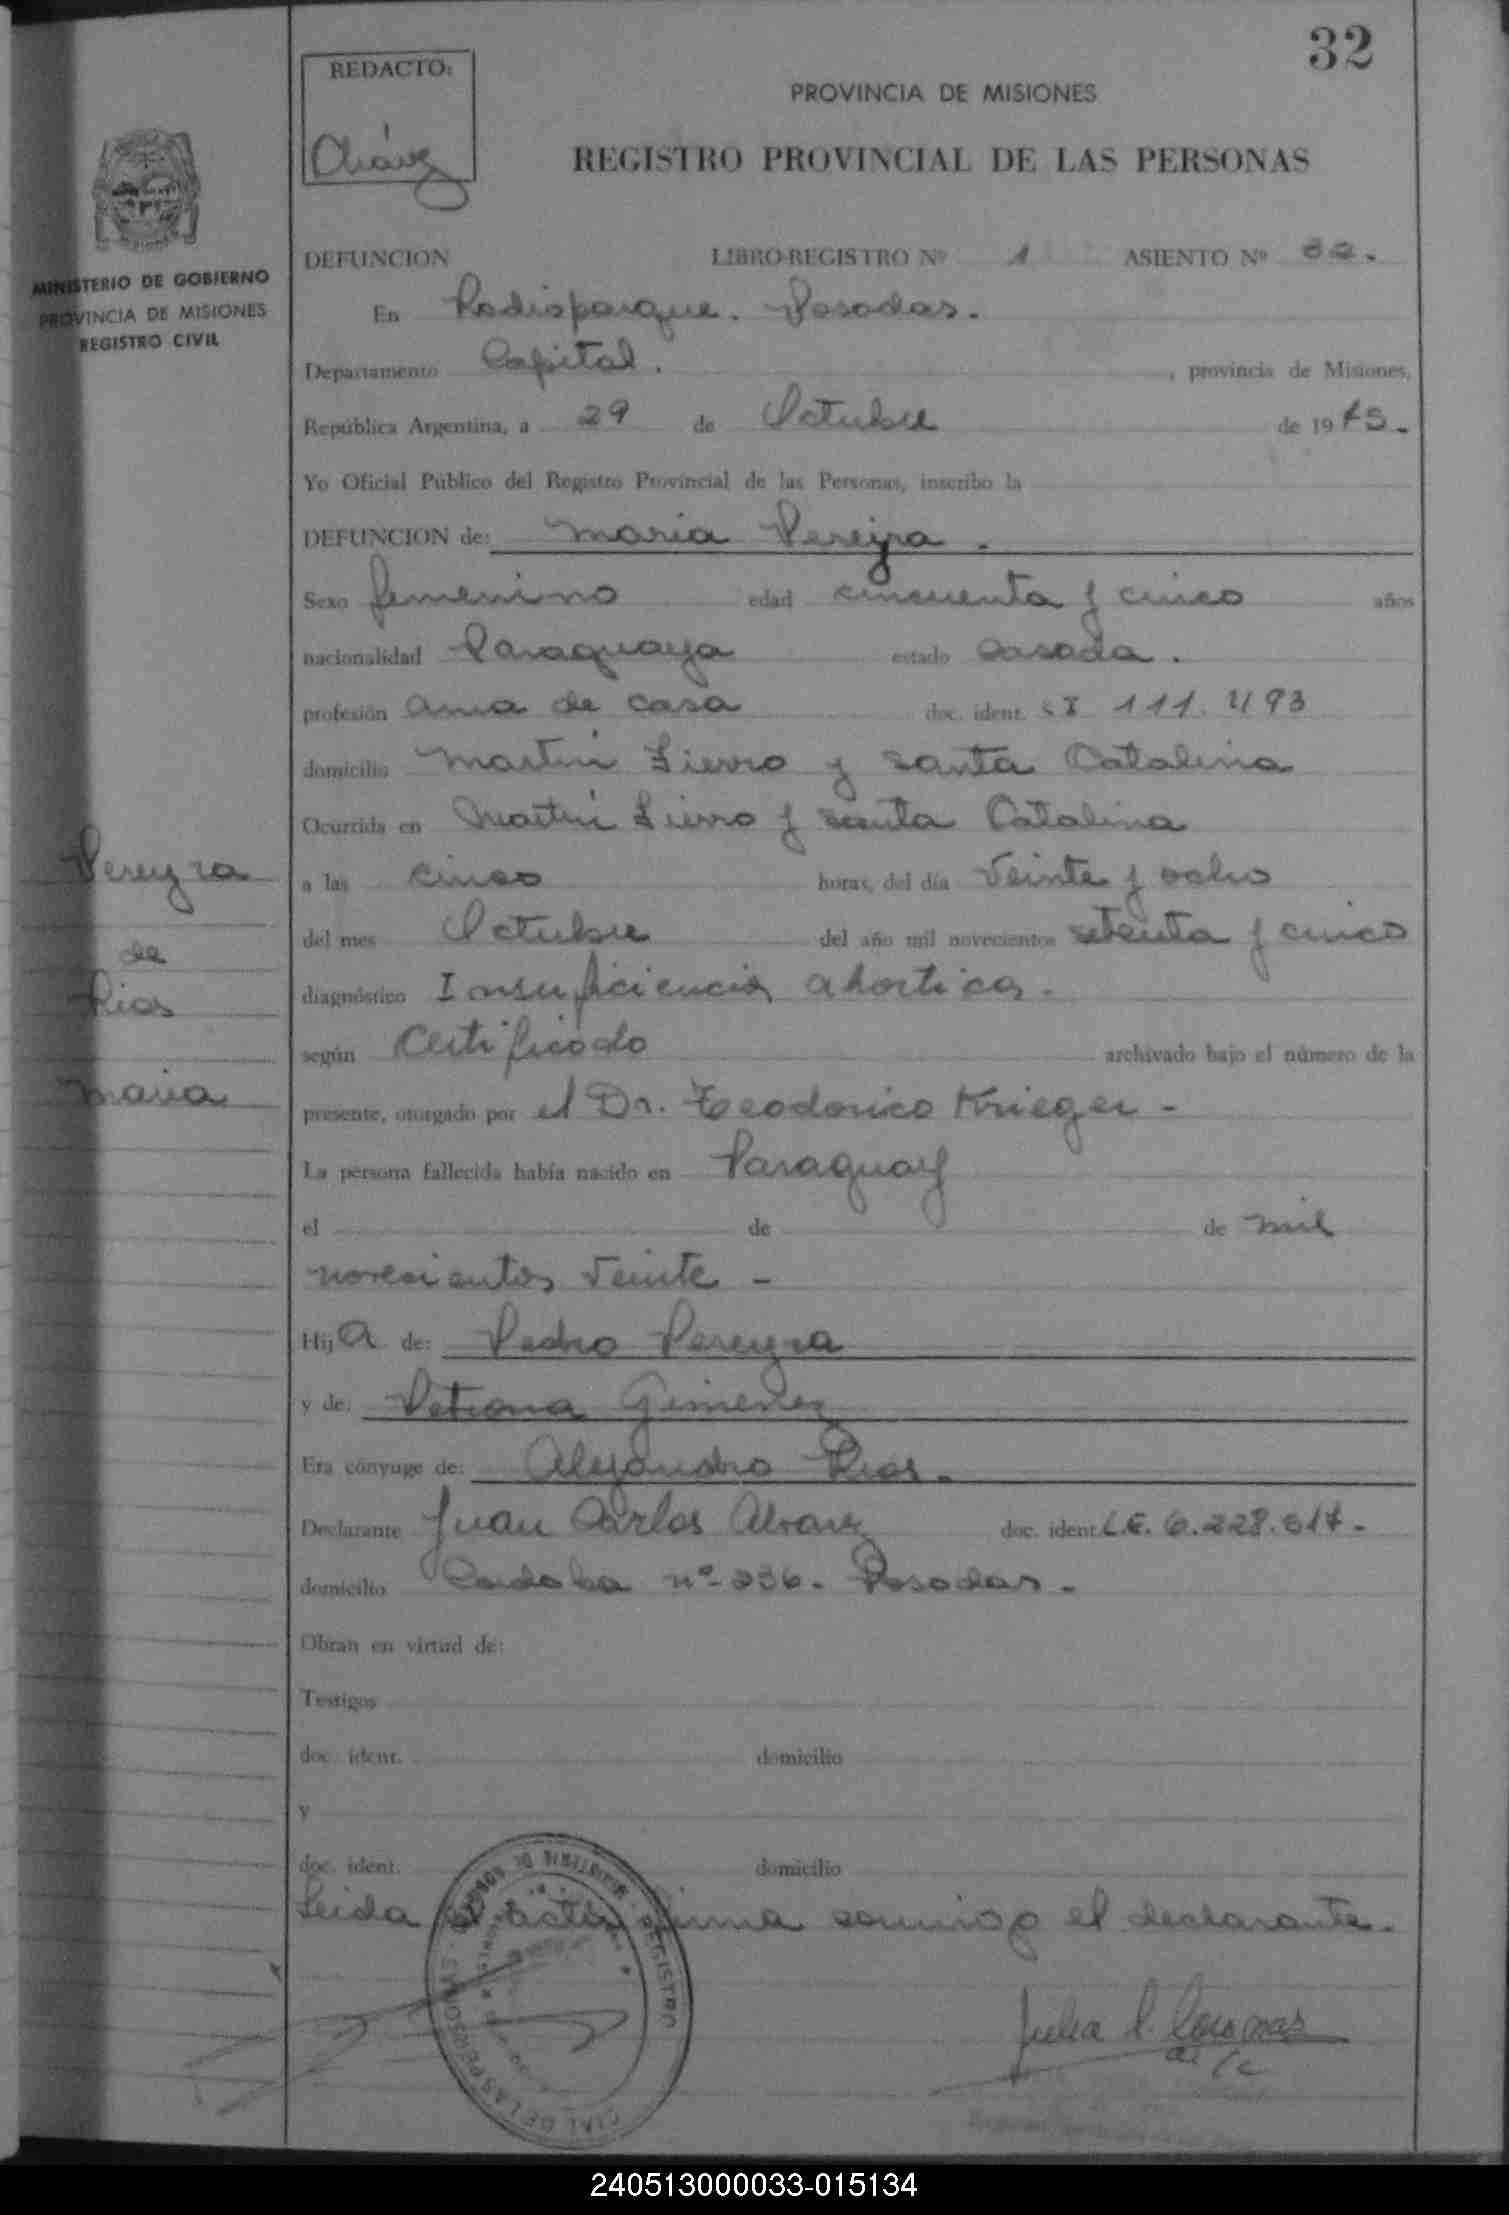 32
REDACTO:
Chávez
PROVINCIA DE MISIONES
REGISTRO PROVINCIAL DE LAS PERSONAS
MINISTERIO DE GOBIERNO
PROVINCIA DE MISIONES
REGISTRO CIVIL
DEFUNCION LIBRO-REGISTRO Nº 1 ASIENTO Nº 32.
En Radioparque. Posadas.
Departamento Capital. , provincia de Misiones,
República Argentina, a 29 de Octubre de 1975.
Yo Oficial Público del Registro Provincial de las Personas, inscribo la
DEFUNCION de: Maria Pereyra.
Sexo femenino edad cincuenta y cinco años
nacionalidad Paraguaya estado Casada.
profesión ama de casa doc. ident. 111.493
domicilio Martin Fierro y Santa Catalina
Ocurrida en Martin Fierro y Santa Catalina
a las cinco horas, del día Veinte y ocho
del mes Octubre del año mil novecientos setenta y cinco
diagnóstico Insuficiencia ahortica.
según Certificado archivado bajo el número de la
presente, otorgado por el Dr. Teodorico Krieger -
La persona fallecida había nacido en Paraguay
el de de mil
novecientos Veinte -
Hija de: Pedro Pereyra
y de: Petrona Gimenez
Era cónyuge de: Alejandro Rios.
Declarante Juan Carlos Alvarez doc. ident. L.E. 6.228.517.
domicilio Cordoba nº 236. Posadas.
Obran en virtud de:
Testigos
doc. ident. domicilio
y
doc. ident. domicilio
Leida el acta firma conmigo el declarante.
Pereyra
de
Rios
Maria
REGISTRO
CIAL DE LAS PERSONAS
240513000033-015134